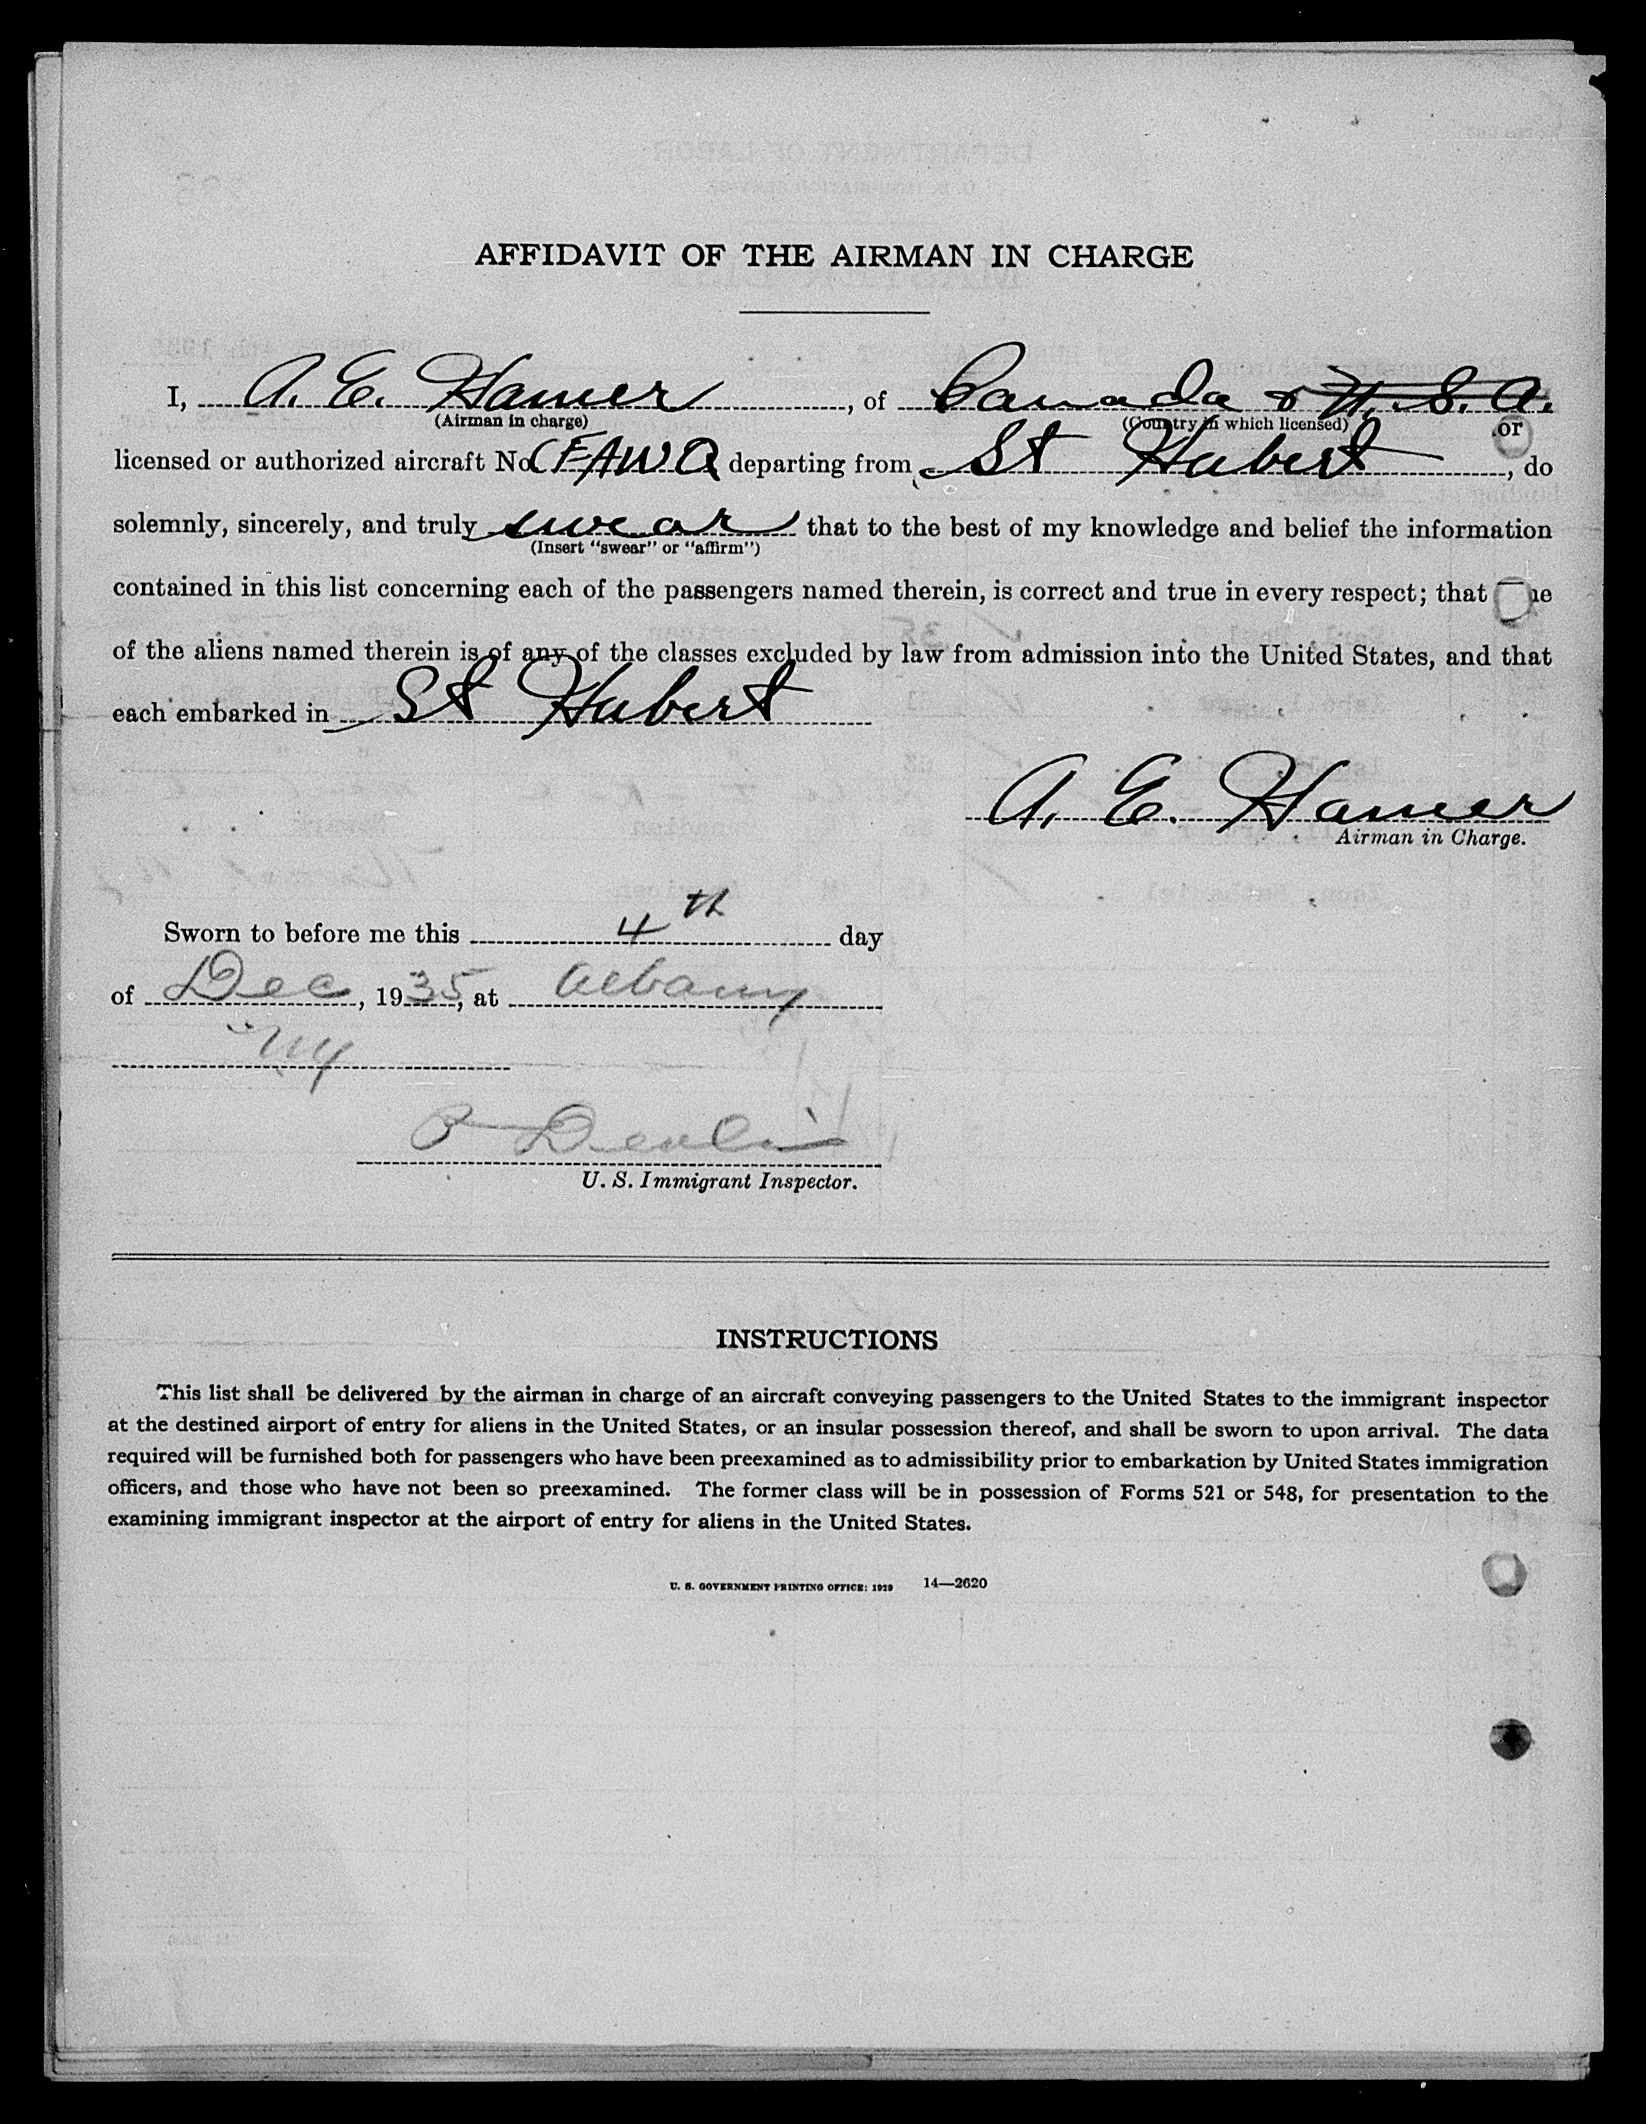 AFFIDAVIT OF THE AIRMAN IN CHARGE
I, A. E. Hamer, of Canada & U. S. A.
(Airman in charge) (Country in which licensed) or
licensed or authorized aircraft No CFAWQ departing from St Hubert, do
solemnly, sincerely, and truly swear that to the best of my knowledge and belief the information
(Insert "swear" or "affirm")
contained in this list concerning each of the passengers named therein, is correct and true in every respect; that
of the aliens named therein is of any of the classes excluded by law from admission into the United States, and that
each embarked in St Hubert
A. E. Hamer
Airman in Charge.
Sworn to before me this 4th day
of Dec, 1935, at Albany
NY
P Devlin
U. S. Immigrant Inspector.
INSTRUCTIONS
This list shall be delivered by the airman in charge of an aircraft conveying passengers to the United States to the immigrant inspector
at the destined airport of entry for aliens in the United States, or an insular possession thereof, and shall be sworn to upon arrival. The data
required will be furnished both for passengers who have been preexamined as to admissibility prior to embarkation by United States immigration
officers, and those who have not been so preexamined. The former class will be in possession of Forms 521 or 548, for presentation to the
examining immigrant inspector at the airport of entry for aliens in the United States.
U. S. GOVERNMENT PRINTING OFFICE: 1929 14—2620